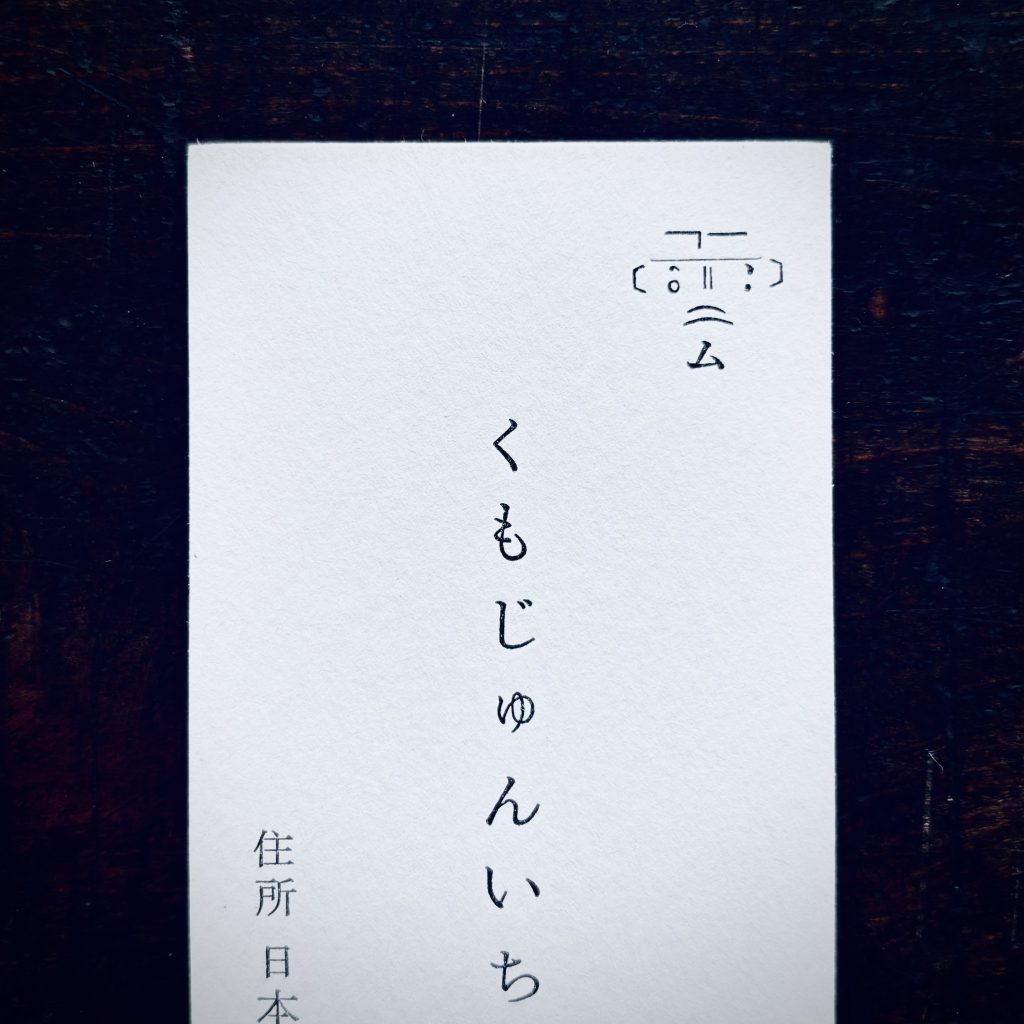 くもじゅんいち
住所 日本